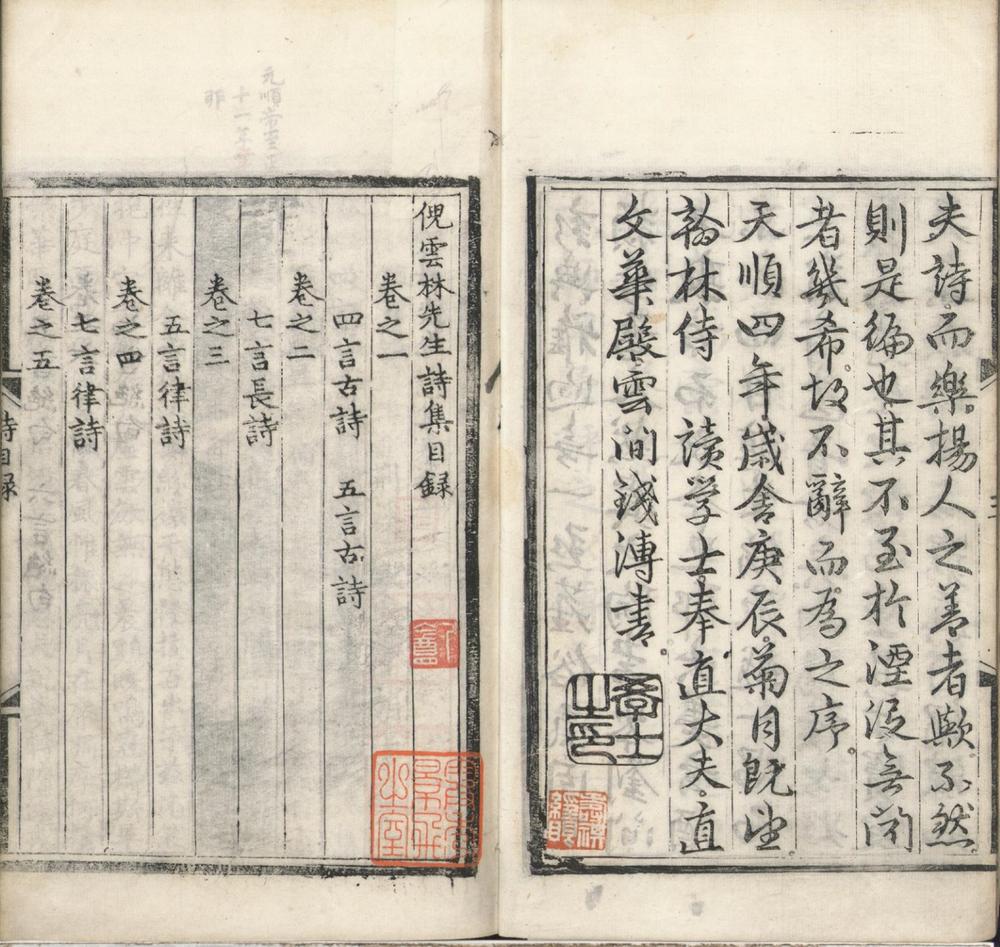 夫詩而樂揚人之善者歟不然
則是編也其不至於湮沒無聞
者幾希故不辭而為之序
天順四年歲舍庚辰菊月既望
翰林侍讀學士奉直大夫直
文華殿雲間錢溥書
倪雲林先生詩集目録
卷之一
四言古詩 五言古詩
卷之二
七言長詩
卷之三
五言律詩
卷之四
七言律詩
卷之五
詩目録